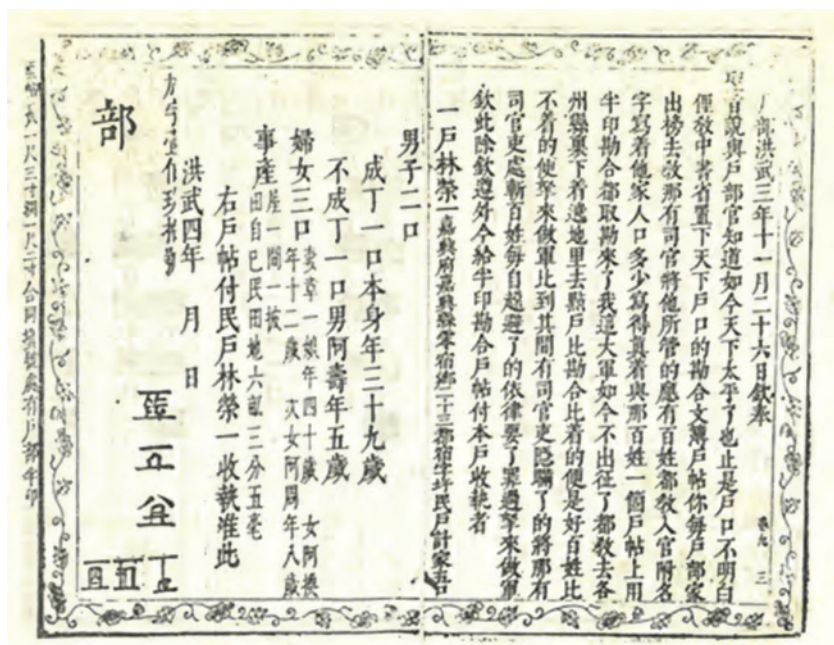 户部洪武三年十一月二十六日欽奉
聖旨說與户部官知道如今天下太平了也止是户口不明白
俚教中書省置下天下户口的勘合文簿户帖你每户部家
出榜去教那有司官將他所管的應有百姓都教入官附名
字寫着他家人口多少寫得真着與那百姓一個户帖上用
半印勘合都取勘來了我這大軍如今不出征了都教去各
州縣裏下着遶地里去點户比勘合比着的便是好百姓比
不着的便拏來做軍比到其間有司官吏隱瞞了的將那有
司官吏處斬百姓每自趓避了的依律要了罪過拏來做軍
欽此除欽遵外今給半印勘合户帖付本户收執者
一户林榮一嘉興府嘉興縣零宿鄉二十三都宿字圩民户計家五口
男子二口
成丁一口本身年三十九歲
不成丁一口男阿壽年五歲
婦女三口妻章一娘年四十歲 女阿換
年十二歲 次女阿周年八歲
事產屋一間一披
田自己民田地六畝三分五毫
右户帖付民户林榮一收執准此
洪武四年 月 日
部
卷九 三